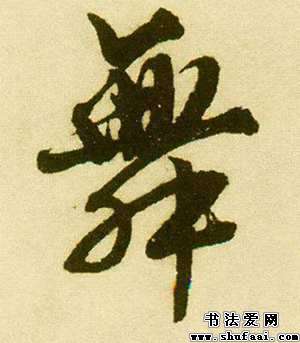 舞
书法爱网
www.shufaai.com